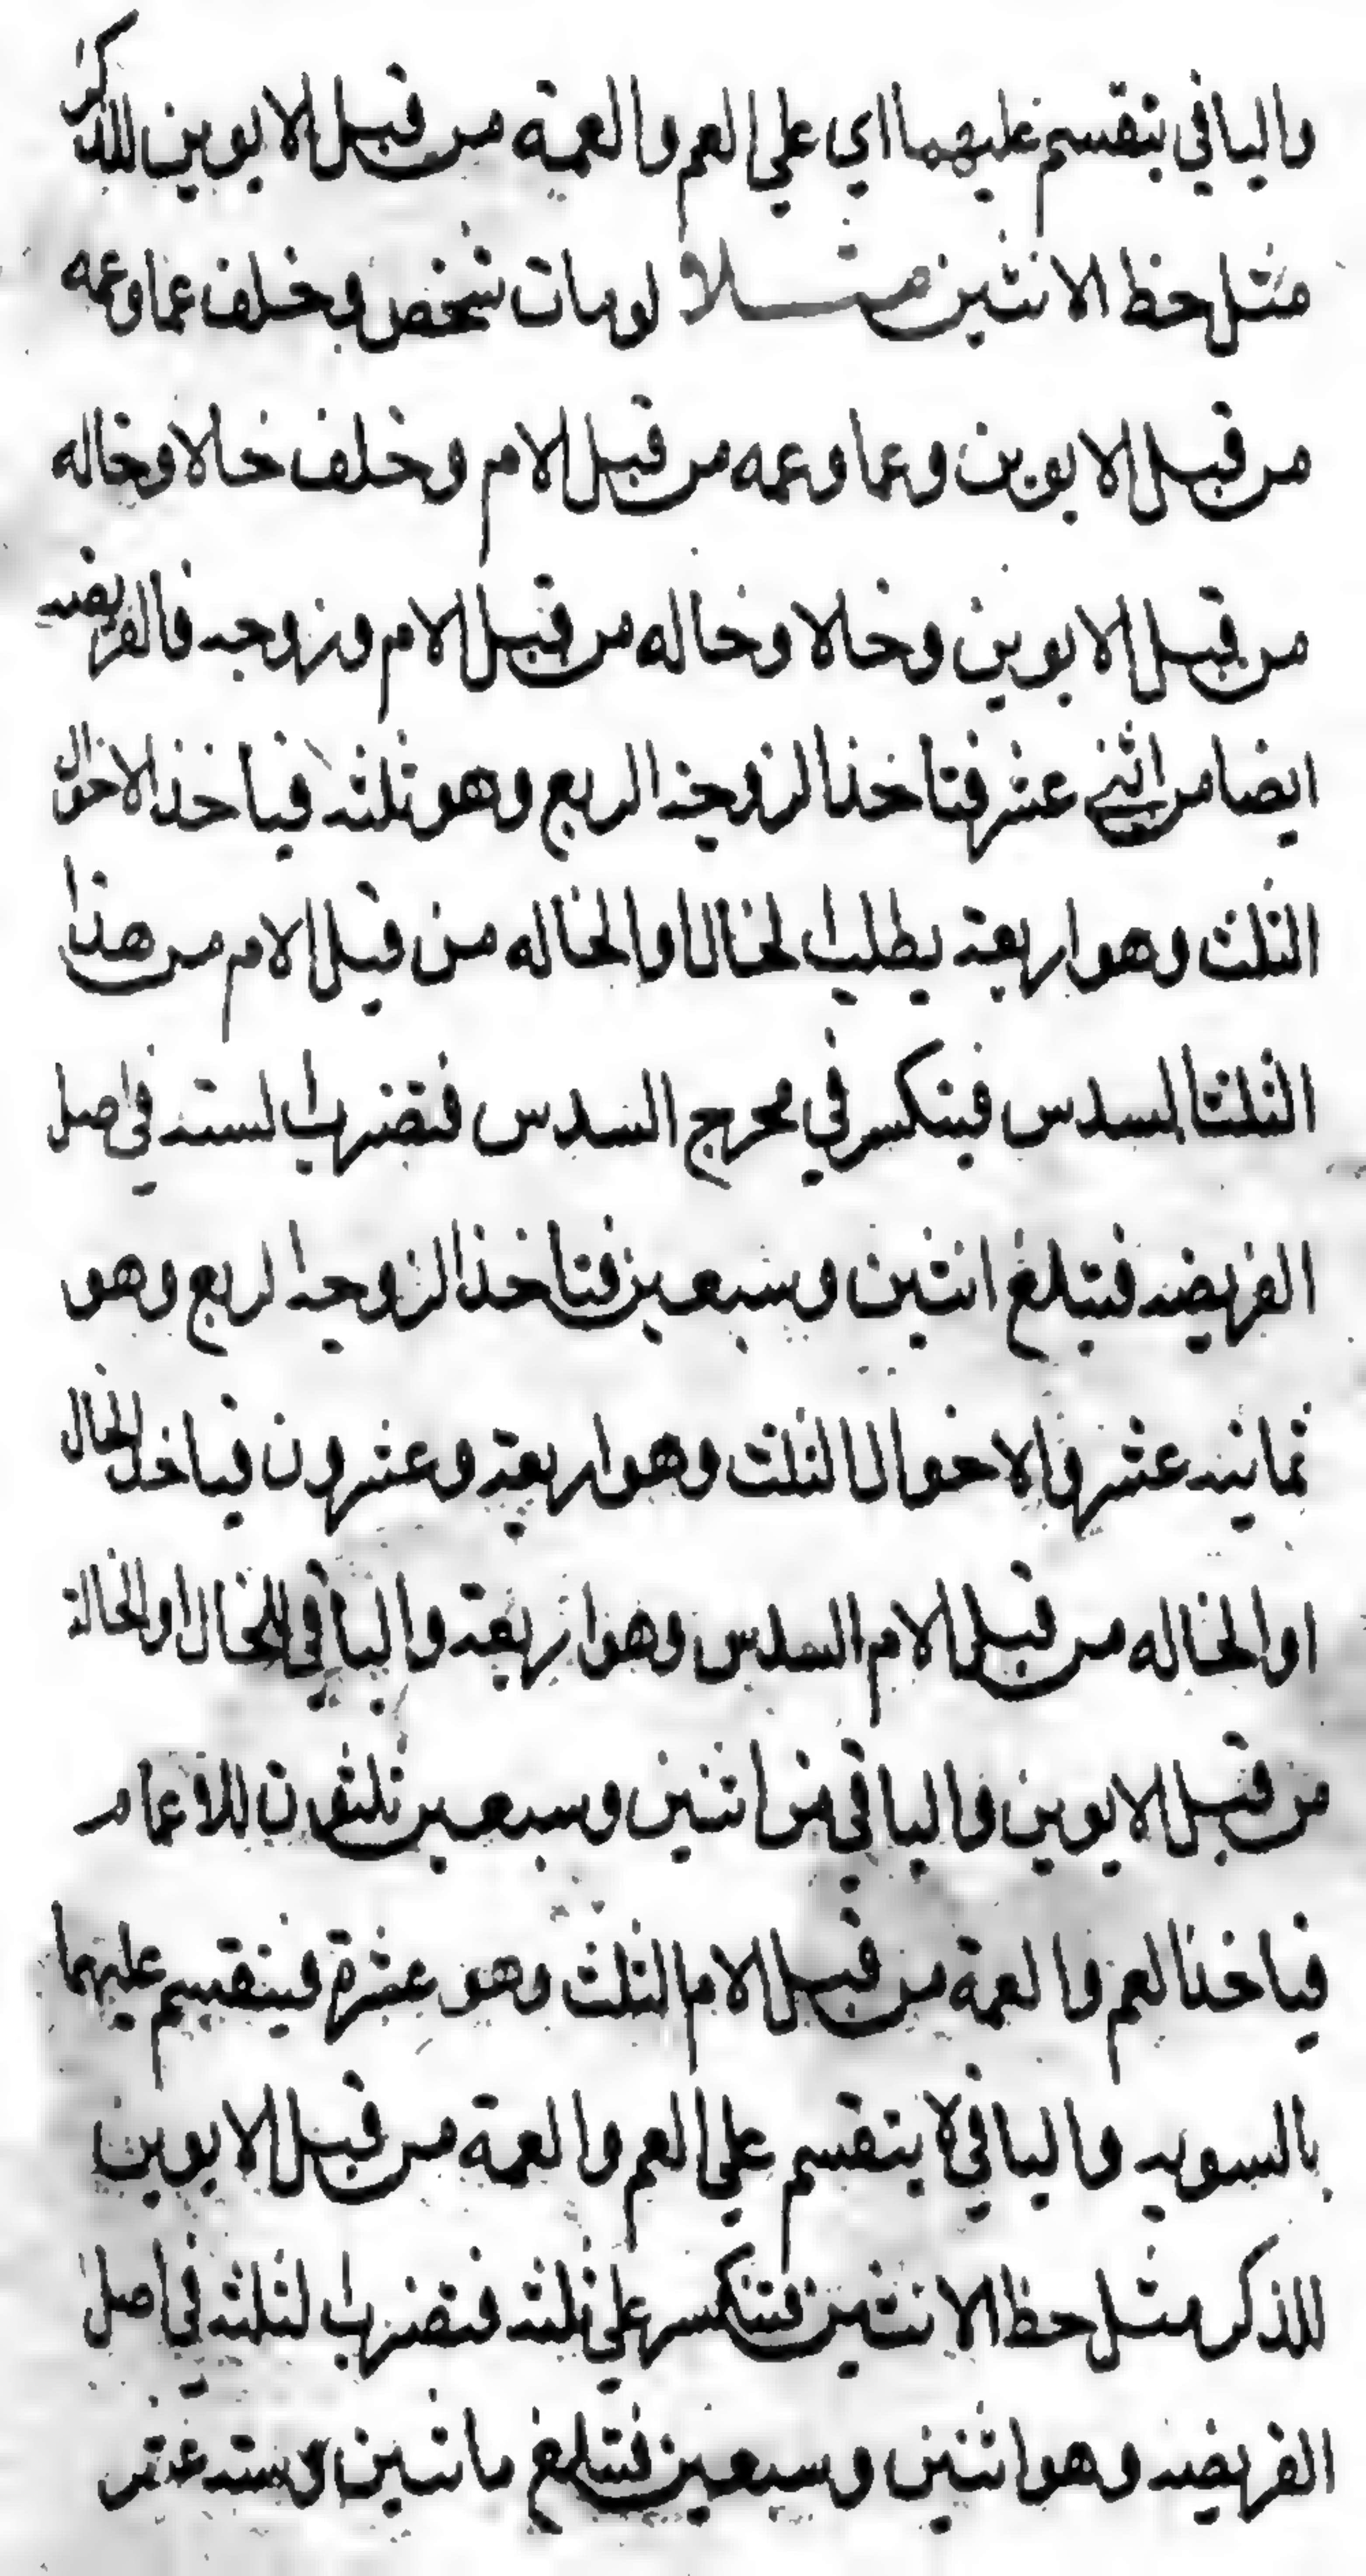 والباقي ينقسم عليهما اي علي العم والعمة من قبل الابوين للذكر
مثل حظ الانثيين مثلا لومات شخص وخلف عما وعمه
من قبل الابوين وعما وعمه من قبل الام وخلف خالا وخاله
من قبل الابوين وخالا وخاله من قبل الام وزوجه فالفريضه
ايضا من اثني عشر فتاخذ الزوجه الربع وهو ثلثه فياخذ الاخوال
الثلث وهو اربعة يطلب الخال او الخاله من قبل الام من هذا
الثلث السدس فينكسر في مخرج السدس فتضرب السته في اصل
الفريضه فتبلغ اثنين وسبعين فتاخذ الزوجه الربع وهو
ثمانيه عشر والاخوال الثلث وهو اربعة وعشرون فياخذ الخال
او الخاله من قبل الام السدس وهو اربعة والباقي للخال او الخالة
من قبل الابوين والباقي من اثنين وسبعين ثلثون للاعمام
فياخذ العم والعمة من قبل الام الثلث وهو عشرة فينقسم عليهما
بالسويه والباقي لا ينقسم علي العم والعمة من قبل الابوين
للذكر مثل حظ الانثيين فتنكسر علي ثلثه فتضرب الثلثه في اصل
الفريضه وهو اثنين وسبعين فتبلغ ماتين وسته عشر